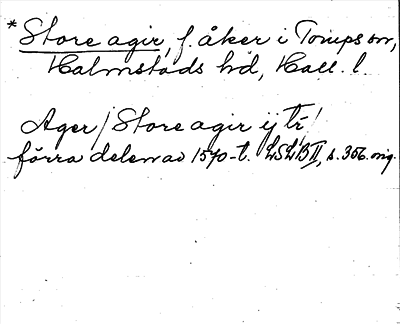 *Store agir, f. åker i Tomps sn,
Halmstads hd, Hall. l.
Ager / Store agir ij tr /
förra delen av 1570-t. LSLB II, s. 356. orig.